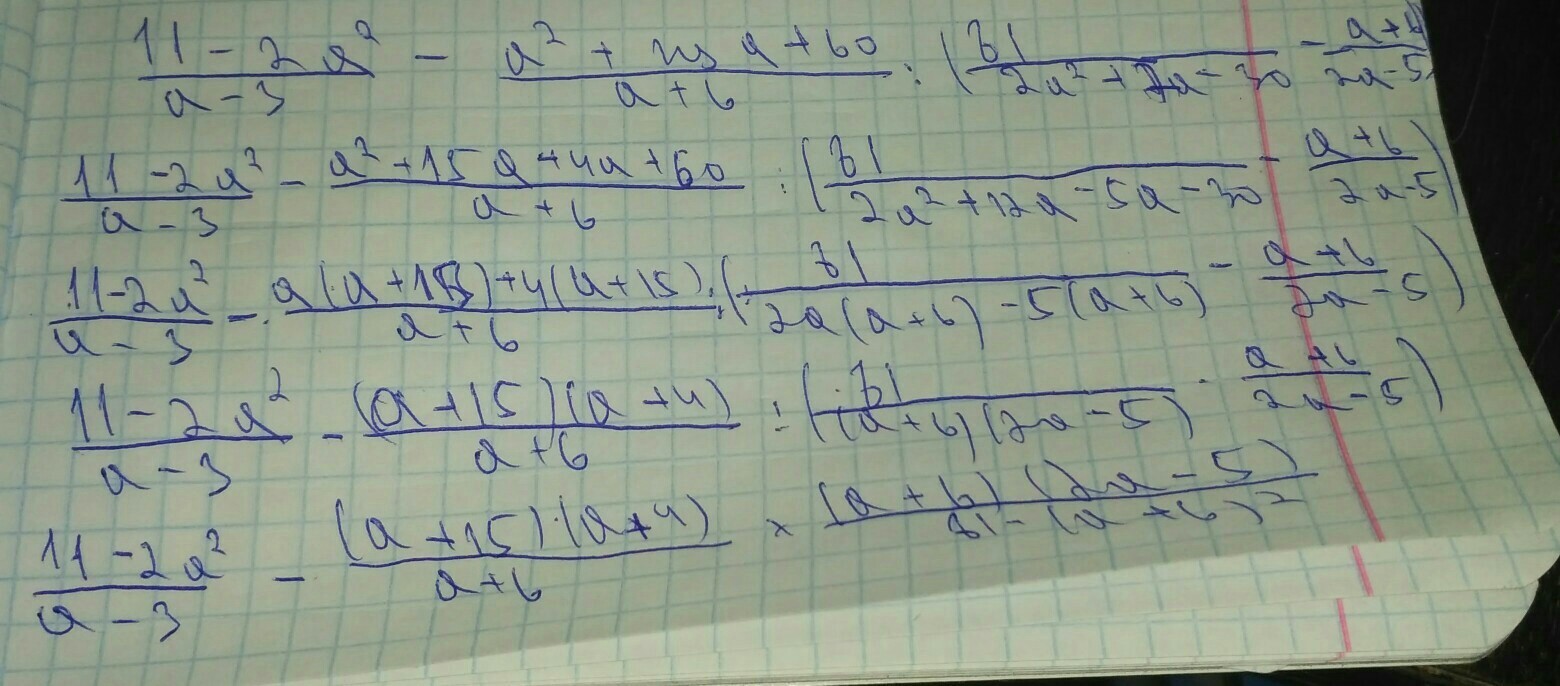 11-2a²/a-3 - a²+19a+60/a+6 : (81/2a²+7a-30 - a+6/2a-5)
11-2a²/a-3 - a²+15a+4a+60/a+6 : (81/2a²+12a-5a-30 - a+6/2a-5)
11-2a²/a-3 - a(a+15)+4(a+15)/a+6 : (81/2a(a+6)-5(a+6) - a+6/2a-5)
11-2a²/a-3 - (a+15)(a+4)/a+6 : (81/(a+6)(2a-5) - a+6/2a-5)
11-2a²/a-3 - (a+15)·(a+4)/a+6 × (a+6)(2a-5)/81-(a+6)²